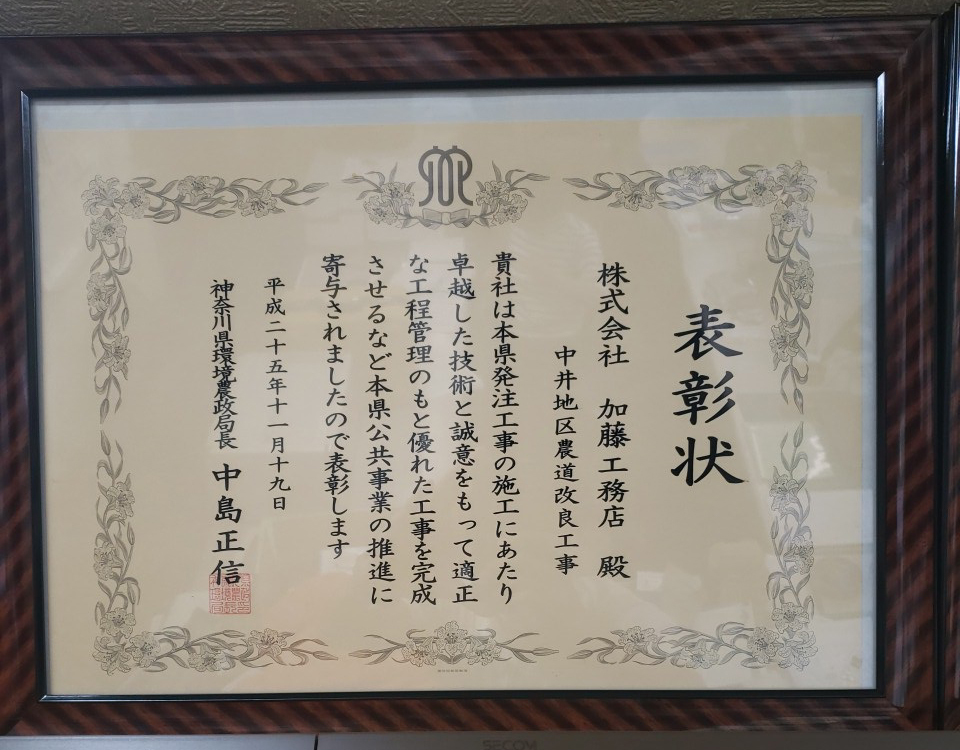 表彰状
株式会社　加藤工務店　殿
中井地区農道改良工事
貴社は本県発注工事の施工にあたり
卓越した技術と誠意をもって適正
な工程管理のもと優れた工事を完成
させるなど本県公共事業の推進に
寄与されましたので表彰します
平成二十五年十一月十九日
神奈川県環境農政局長　中島正信
SECOM